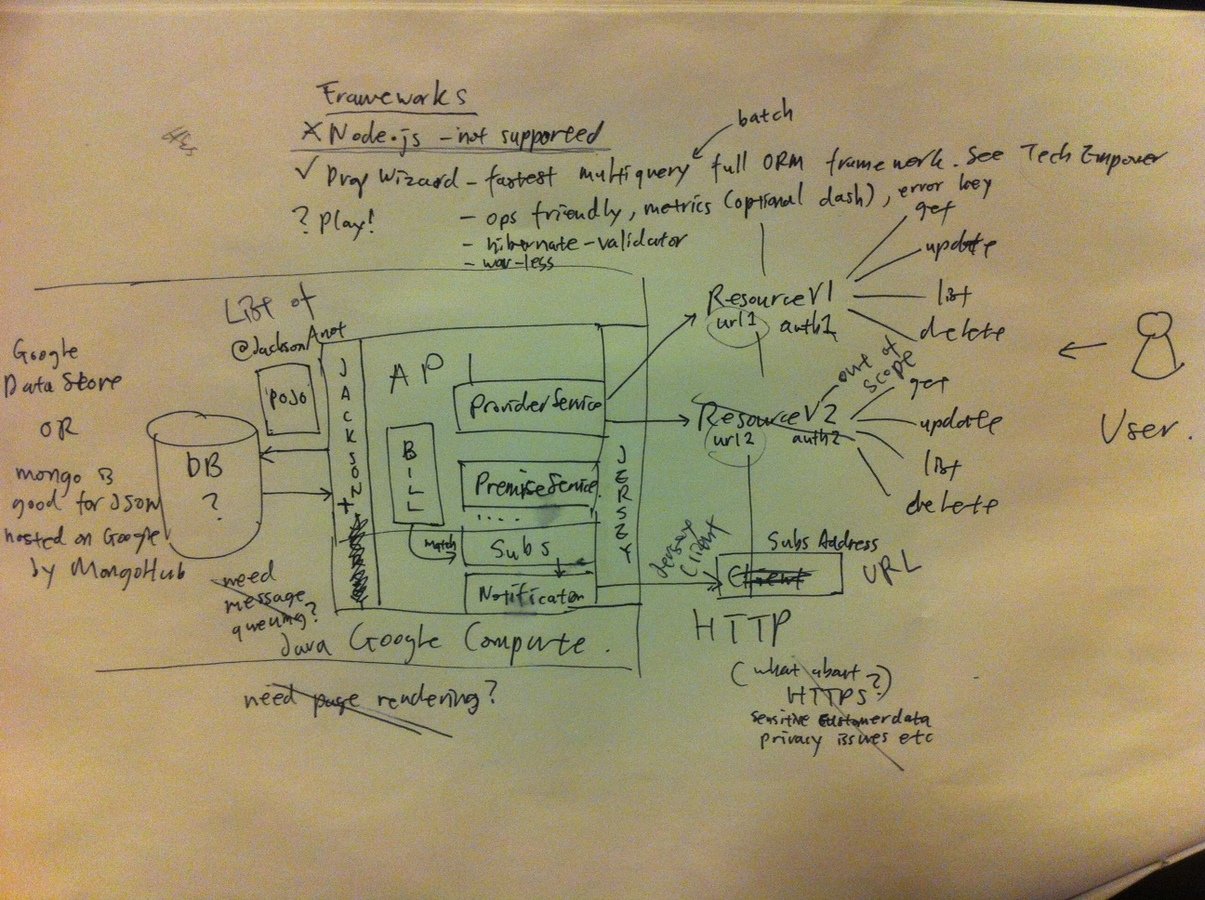 Frameworks
X Node.js - not supported
batch
✓ Drop Wizard - fastest multiquery full ORM framework. See Tech Empower
? Play!
- ops friendly, metrics (optional dash), error key
- hibernate-validator
- war-less
List of
@JacksonAnot
POJO
Google
Data Store
OR
mongo is
good for JSON
hosted on Google
by MongoHub
DB
?
JACKSON
API
BILL
match
ProviderService
PremiseService
....
Subs
Notificator
JERSEY
need
message
queuing?
Java Google Compute.
need page rendering?
ResourceV1
url1 auth1
get
update
list
delete
out of
scope
ResourceV2
url2 auth2
get
update
list
delete
User.
Jersey
Client
Subs Address
Client
URL
HTTP
(what about
HTTPS?)
sensitive customer data
privacy issues etc